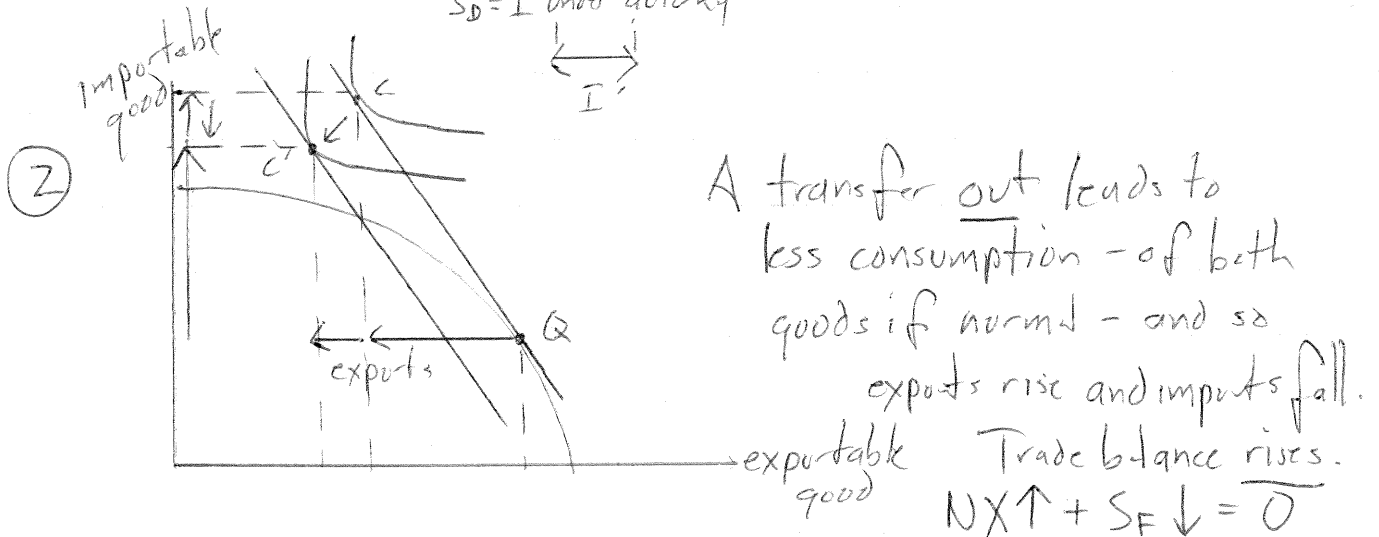 S_D = I
I'
importable
good
C
C'
②
Q
exports
exportable
good
A transfer out leads to
less consumption - of both
goods if normal - and so
exports rise and imports fall.
Trade balance rises.
NX↑ + S_F ↓ = 0